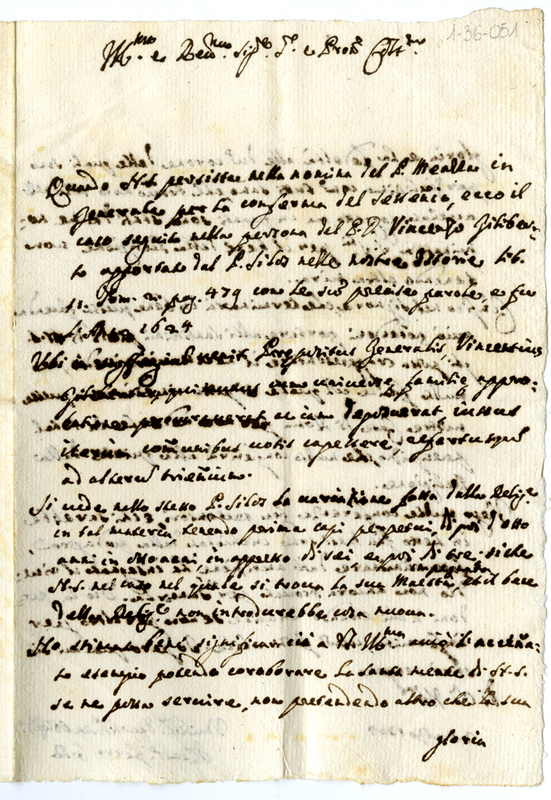 1-36-051
Ill.mo e Rev.mo Sig.r S.r e Pron Coll.mo
Quando N.S. persista nella nomina del P. Mealla in
Generale per la conferma del sessenio, ecco il
caso seguito nella persona del P. D. Vincenzo Giliber-
to apportato dal P. Silos nelle nostre Istorie lib.
11. Tom. 2. pag. 479 con le sue precise parole, e fu
l'Anno 1624
Ubi in Prepositus Generalis Vincentius
universe familie appro-
deposuerat, iussus
iterum comunibus votis capessere,
ad alterum trienium.
Si vede nello stesso P. Silos la variazione fatta dalla Relig.e
in tal materia, tenendo prima capi perpetui, di poi d'otto
anni in otto anni, in appresso di sei e poi di tre. siche
N.S. nel caso nel quale si trova la sua Maestà, et il bene
impegnata
della Relig.e non introdurebbe cosa nuova.
Ho stimato bene significar ciò a V.S. Ill.ma accio l'accena-
to esempio potendo coroborare la santa mente di N.S.
se ne possa servire, non pretendendo altro che la sua
gloria